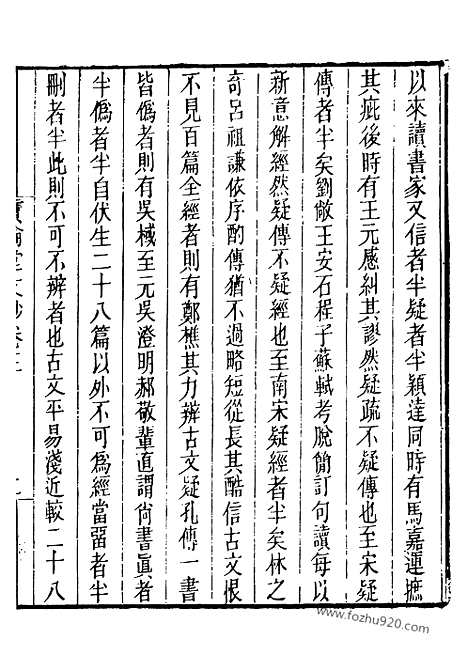 以來讀書家又信者半疑者半穎達同時有馬嘉運摭
其疵後時有王元感糾其謬然疑疏不疑傳也至宋疑
傳者半矣劉敞王安石程子蘇軾考脫簡訂句讀每以
新意解經然疑傳不疑經也至南宋疑經者半矣林之
奇呂祖謙依序酌傳猶不過略短從長其酷信古文恨
不見百篇全經者則有鄭樵其力辨古文疑孔傳一書
皆僞者則有吳棫至元吳澄明郝敬輩直謂尙書眞者
半僞者半自伏生二十八篇以外不可爲經當畱者半
刪者半此則不可不辨者也古文平易淺近較二十八
寶綸堂文鈔卷三
www.fozhu920.com